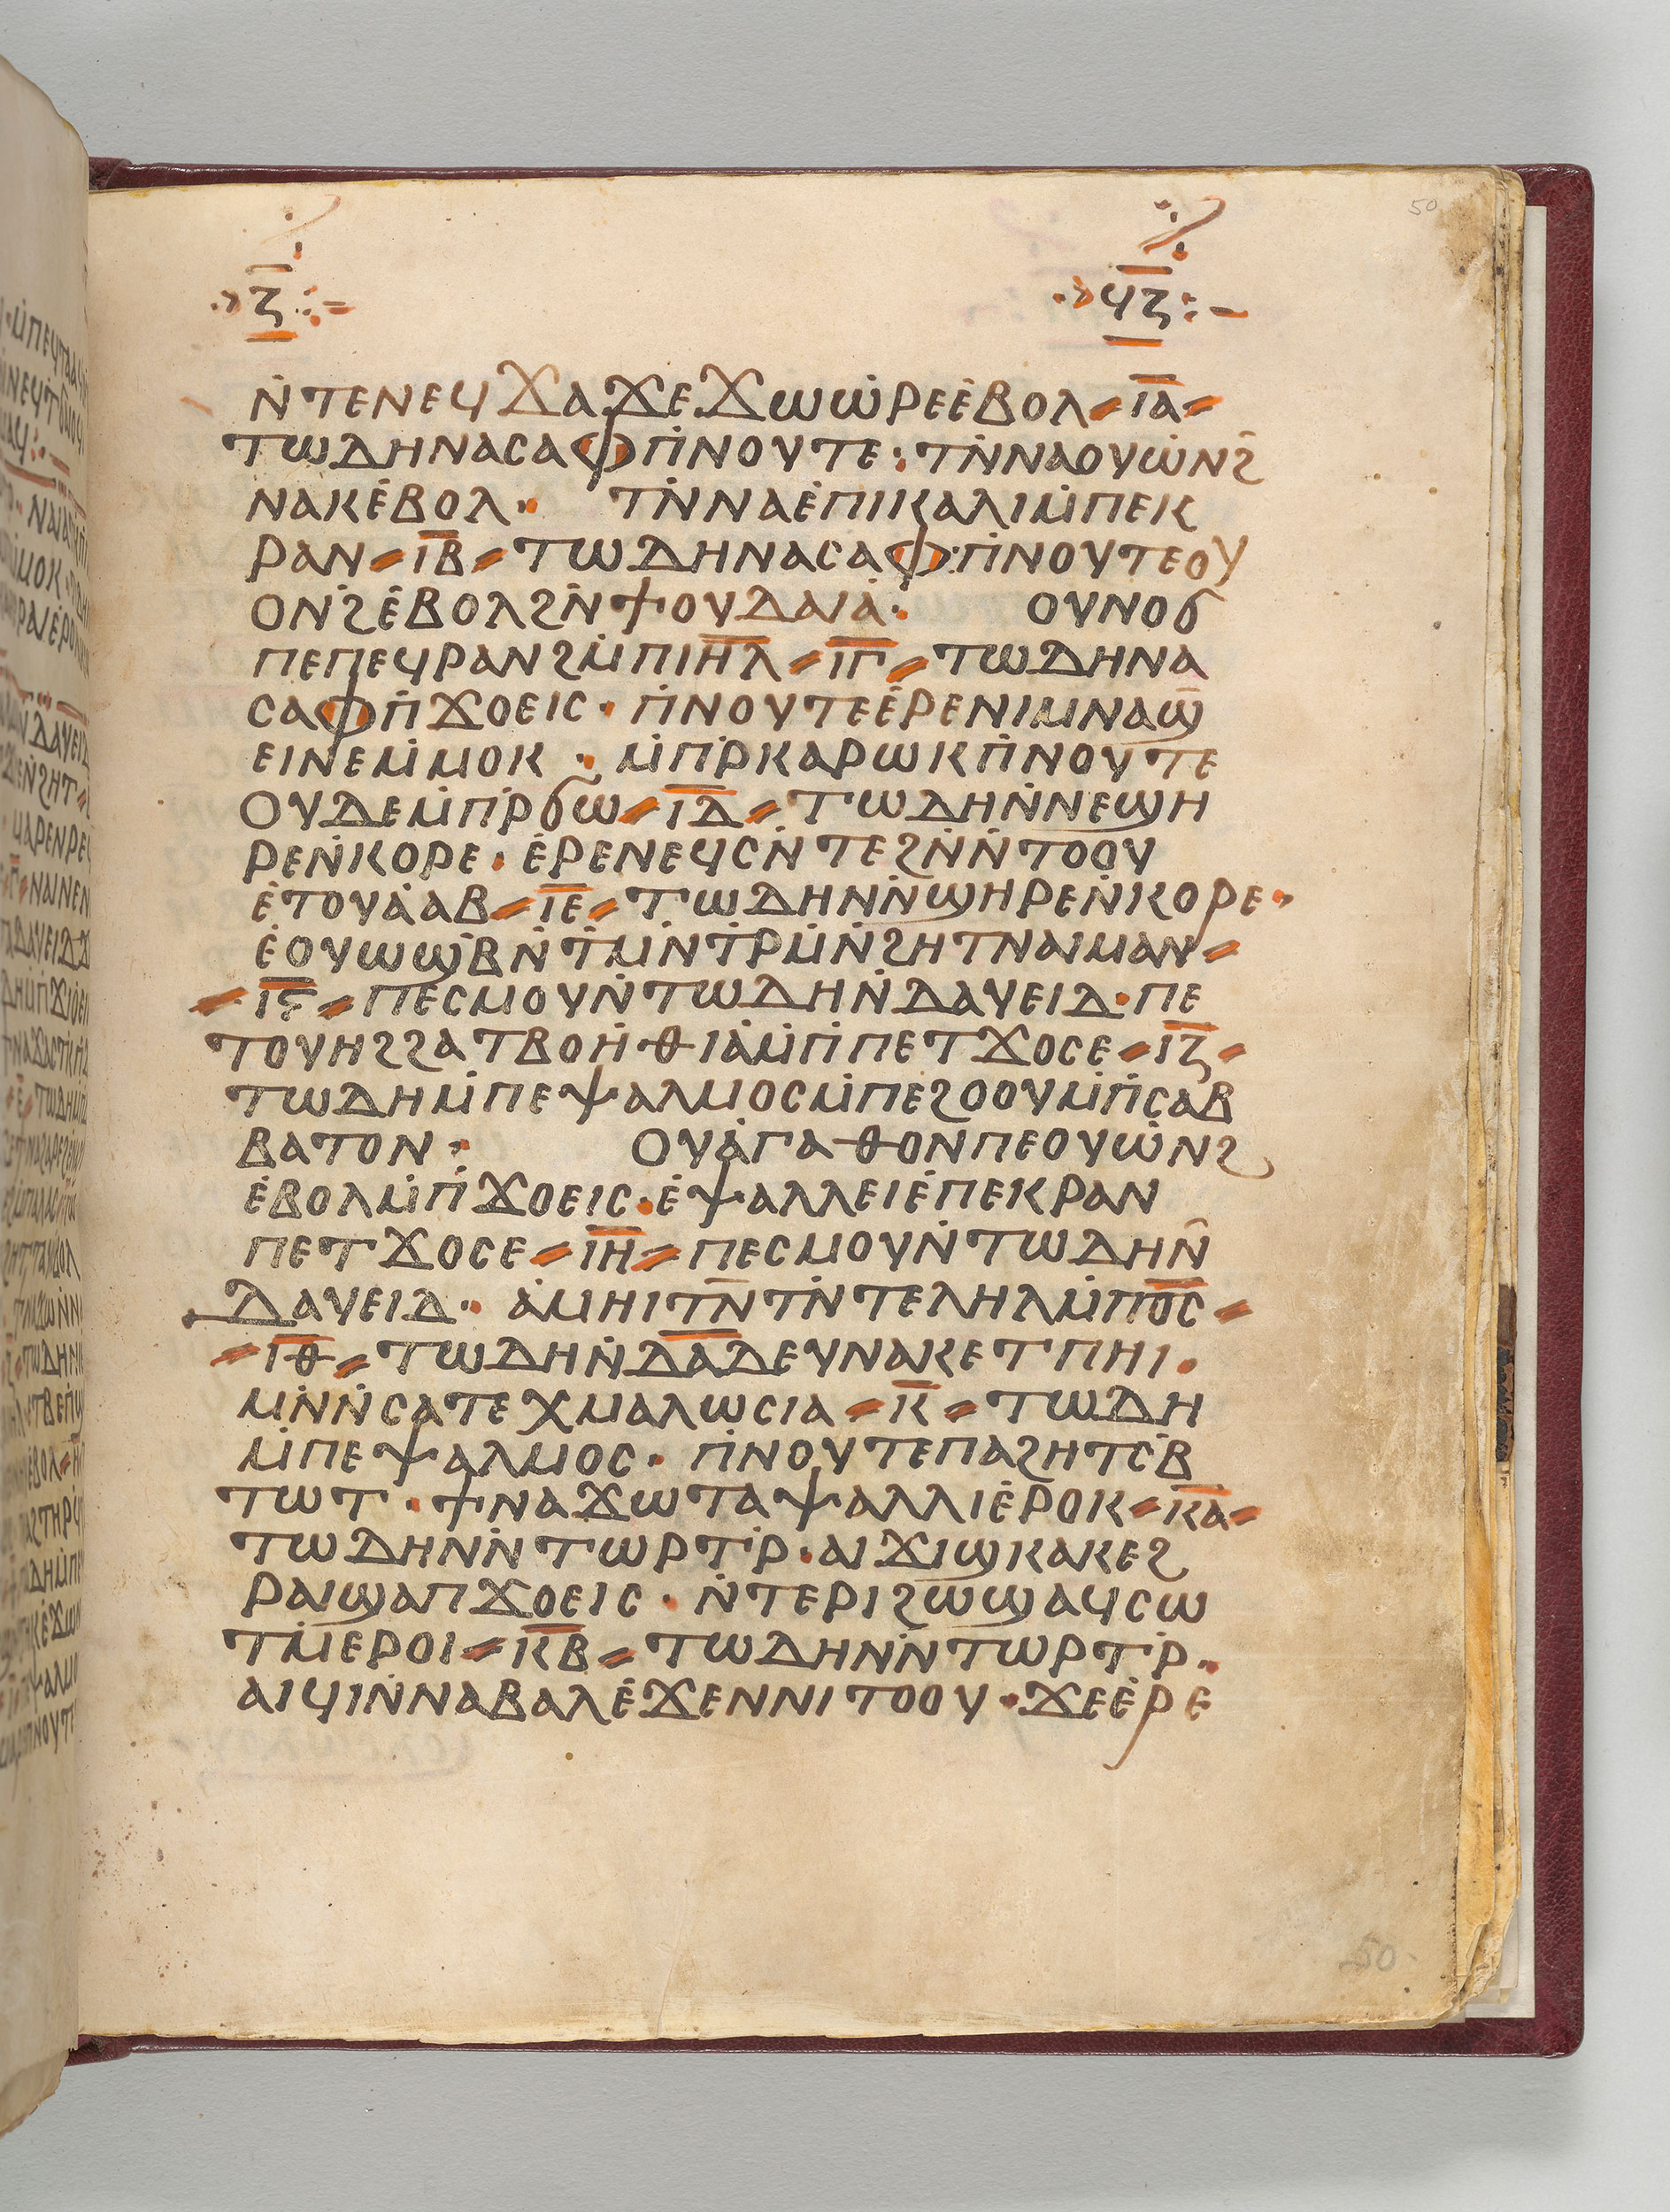 50
ⲍ ϥⲍ
ⲛ̇ⲧⲉⲛⲉϥϫⲁϫⲉϫⲱⲱ̇ⲣⲉⲉ̇ⲃⲟⲗ ⲓ̅ⲁ̅
ⲧⲱⲇⲏⲛⲁⲥⲁⲫⲡ̇ⲛⲟⲩⲧⲉ · ⲧⲛ̇ⲛⲁⲟⲩⲱ̇ⲛϩ̄
ⲛⲁⲕⲉ̇ⲃⲟⲗ · ⲧⲛ̇ⲛⲁⲉ̇ⲡⲓⲕⲁⲗⲓⲙ̇ⲡⲉⲕ
ⲣⲁⲛ ⲓ̅ⲃ̅ ⲧⲱⲇⲏⲛⲁⲥⲁⲫ · ⲡ̇ⲛⲟⲩⲧⲉⲟⲩ
ⲟⲛϩ̇ⲉ̇ⲃⲟⲗϩⲛ̇ϯⲟⲩⲇⲁⲓⲁ̇ · ⲟⲩⲛⲟϭ
ⲡⲉⲡⲉϥⲣⲁⲛϩⲙ̇ⲡⲓⲏ̅ⲗ̅ ⲓ̅ⲅ̅ ⲧⲱⲇⲏⲛⲁ
ⲥⲁⲫⲡ̇ϫⲟⲉⲓⲥ · ⲡ̇ⲛⲟⲩⲧⲉⲉ̇ⲣⲉⲛⲓⲙⲛⲁϣ̄
ⲉⲓⲛⲉⲙ̇ⲙⲟⲕ · ⲙ̇ⲡⲣ̇ⲕⲁⲣⲱⲕⲡ̇ⲛⲟⲩⲧⲉ
ⲟⲩⲇⲉⲙ̇ⲡⲣ̇ϭⲱ ⲓ̅ⲇ̅ ⲧⲱⲇⲏⲛ̇ⲛⲉϣⲏ
ⲣⲉⲛ̇ⲕⲟⲣⲉ · ⲉ̇ⲣⲉⲛⲉϥⲥⲛ̇ⲧⲉϩⲛ̇ⲛ̇ⲧⲟⲟⲩ
ⲉ̇ⲧⲟⲩⲁ̇ⲁⲃ ⲓ̅ⲉ̅ ⲧⲱⲇⲏⲛⲛ̇ϣⲏⲣⲉⲛ̇ⲕⲟⲣⲉ ·
ⲉ̇ⲟⲩⲱϣⲃ̇ⲛ̇ⲧⲙ̇ⲛ̇ⲧⲣ̇ⲙ̇ⲛ̇ϩⲏⲧⲛⲁⲓⲙⲁⲛ
ⲓ̅ⲋ̅ ⲡⲉⲥⲙⲟⲩⲛ̇ⲧⲱⲇⲏⲛ̇ⲇⲁⲩⲉⲓⲇ · ⲡⲉ
ⲧⲟⲩⲏϩϩⲁⲧⲃⲟⲏ̇ⲑⲓⲁ̇ⲙ̇ⲡ̇ⲡⲉⲧϫⲟⲥⲉ ⲓ̅ⲍ̅
ⲧⲱⲇⲏⲙ̇ⲡⲉⲯⲁⲗⲙⲟⲥⲙ̇ⲡⲉϩⲟⲟⲩⲙ̇ⲡ̇ⲥⲁⲃ
ⲃⲁⲧⲟⲛ · ⲟⲩⲁ̇ⲅⲁⲑⲟⲛⲡⲉⲟⲩⲱ̇ⲛϩ
ⲉ̇ⲃⲟⲗⲙ̇ⲡ̇ϫⲟⲉⲓⲥ · ⲉ̇ⲯⲁⲗⲗⲉⲓⲉ̇ⲡⲉⲕⲣⲁⲛ
ⲡⲉⲧϫⲟⲥⲉ ⲓ̅ⲏ̅ ⲡⲉⲥⲙⲟⲩⲛ̇ⲧⲱⲇⲏⲛ̄
ⲇⲁⲩⲉⲓⲇ · ⲁ̇ⲙⲏⲓⲧⲛ̄ⲧⲛ̇ⲧⲉⲗⲏⲗⲙ̇ⲡⲟ̅ⲥ̅
ⲓ̅ⲑ̅ ⲧⲱⲇⲏⲛ̇ⲇ̅ⲁ̅ⲇ̅ⲉⲩⲛⲁⲕⲉⲧⲡⲏⲓ ·
ⲙⲛ̇ⲛ̇ⲥⲁⲧⲉⲭⲙⲁⲗⲱⲥⲓⲁ ⲕ̅ ⲧⲱⲇⲏ
ⲙ̇ⲡⲉⲯⲁⲗⲙⲟⲥ · ⲡ̇ⲛⲟⲩⲧⲉⲡⲁϩⲏⲧⲥⲃ̇
ⲧⲱⲧ · ϯⲛⲁϫⲱⲧⲁⲯⲁⲗⲗⲓⲉ̇ⲣⲟⲕ ⲕ̅ⲁ̅
ⲧⲱⲇⲏⲛⲛ̇ⲧⲱⲣⲧⲣ̇ · ⲁⲓϫⲓϣⲕⲁⲕⲉϩ
ⲣⲁⲓϣⲁⲡϫⲟⲉⲓⲥ · ⲛ̇ⲧⲉⲣⲓϩⲱϣⲁϥⲥⲱ
ⲧⲙ̇ⲉⲣⲟⲓ ⲕ̅ⲃ̅ ⲧⲱⲇⲏⲛⲛ̇ⲧⲱⲣⲧⲣ̇ ·
ⲁⲓϥⲓⲛ̇ⲛⲁⲃⲁⲗⲉ̇ϫⲉⲛⲛⲓⲧⲟⲟⲩ · ϫⲉⲉ̇ⲣⲉ
50